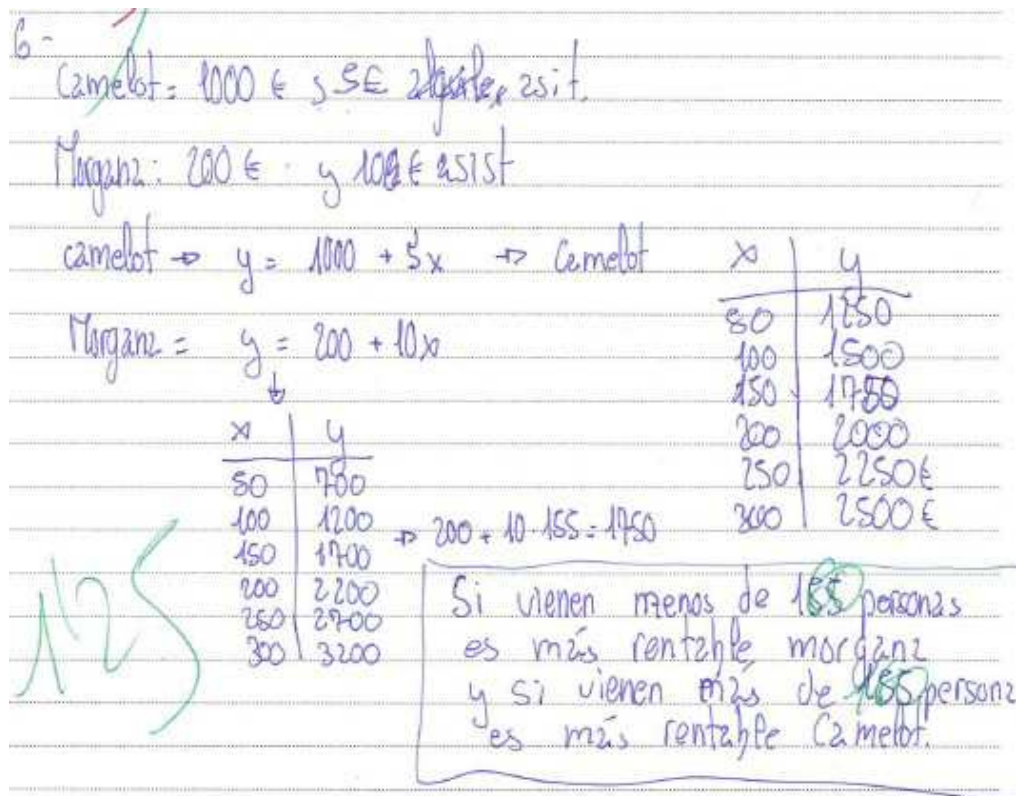 6-
Camelot = 1000 € y 5€ asit.
Morgana: 200 € y 10 € asist
camelot → y = 1000 + 5x → Camelot
Morgana = y = 200 + 10x
x | y
50 | 1250
100 | 1500
150 | 1750
200 | 2000
250 | 2250€
300 | 2500 €
x | y
50 | 700
100 | 1200
150 | 1700
200 | 2200
250 | 2700
300 | 3200
→ 200 + 10 · 155 = 1750
1'25
Si vienen menos de 155 personas
es más rentable morgana
y si vienen más de 155 persona
es más rentable Camelot.